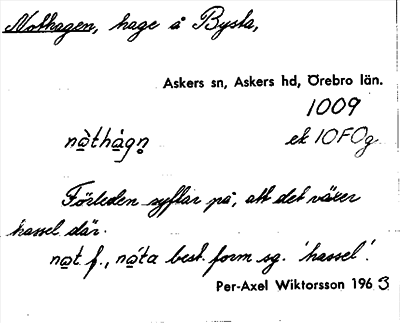 Nothagen, hage å Bysta,
Askers sn, Askers hd, Örebro län.
1009
nàthágn̥ ek 10F0g
Förleden syftar på, att det växer
hassel där.
nat f., náta best. form sg. 'hassel'.
Per-Axel Wiktorsson 1963